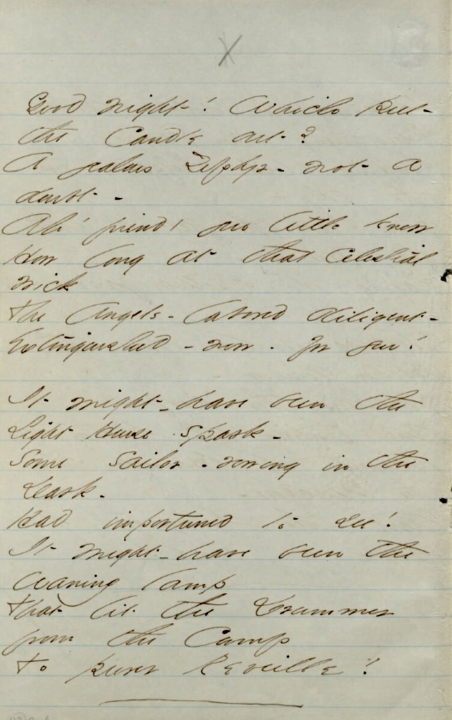 Good night! Which put
the Candle out?
A jealous Zephyr - not a
doubt -
Ah! friend! you little knew
How long at that celestial
wick
The Angels - labored diligent -
Extinguished - now - for you!

It might - have been the
Light House Spark -
Some Sailor - rowing in the
Dark -
Had importuned to see!
It might - have been the
waning lamp
That lit the Drummer
from the Camp
To purer Reveille!